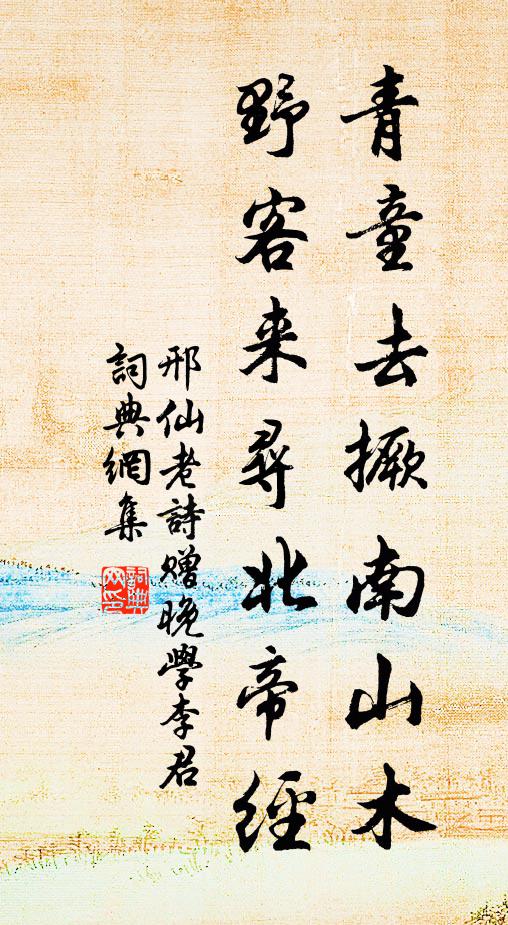 青童去撅南山木
野客来尋北帝經
邢仙老詩赠晚學李君
詞典網集
詞典网印